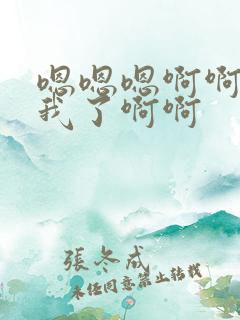 嗯嗯嗯啊啊
我了啊啊
張冬成
未经同意禁止转载